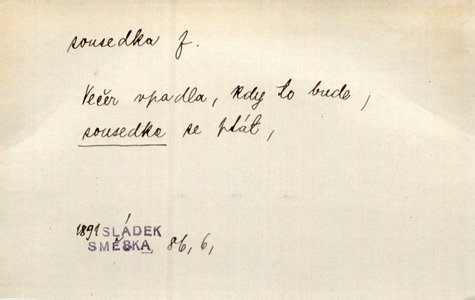 sousedka f.
Večer vpadla, kdy to bude,
sousedka se ptát,
1891 SLÁDEK
SMĚSKA 86, 6,